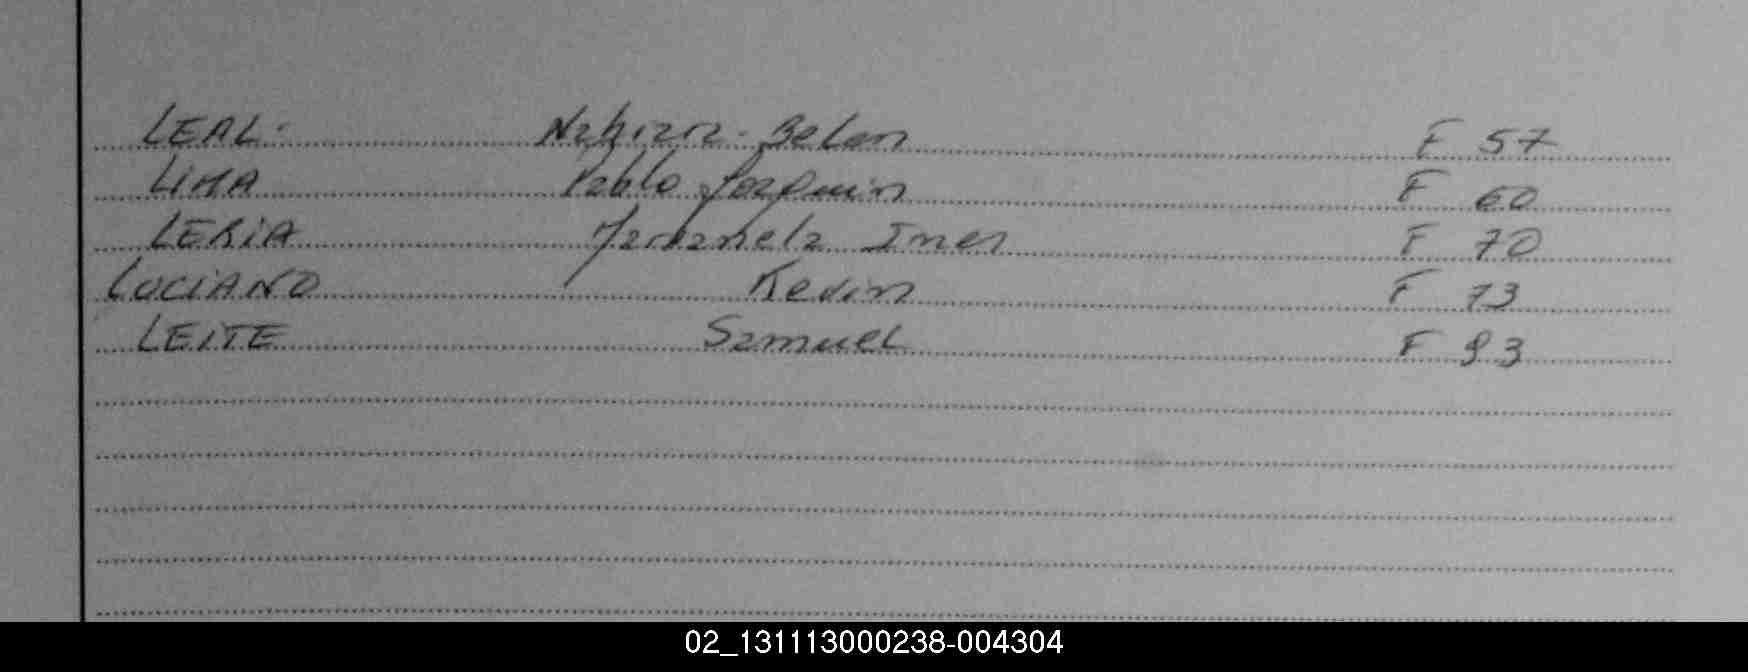 LEAL. Nahiara Belen F 57
LIMA Pablo Joaquin F 60
LERIA Ines F 70
LUCIANO Kevin F 73
LEITE Samuel F 93
02_131113000238-004304